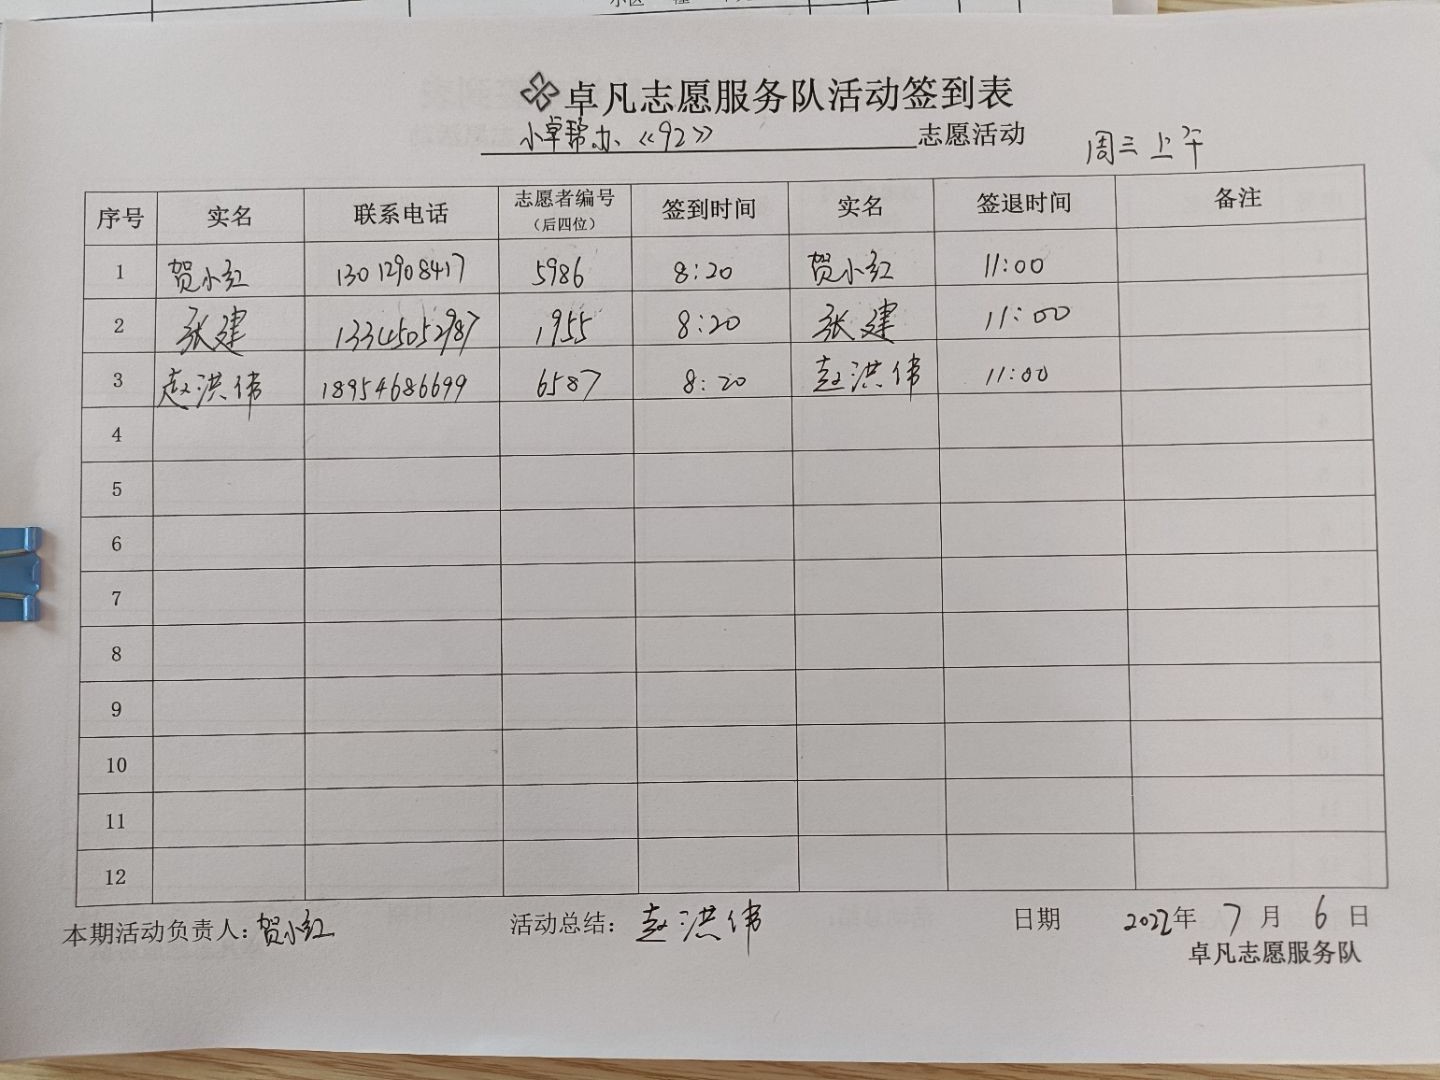 卓凡志愿服务队活动签到表
小卓帮办《92》志愿活动 周三上午
序号 实名 联系电话 志愿者编号（后四位） 签到时间 实名 签退时间 备注
1 贺小红 13012908417 5986 8:20 贺小红 11:00
2 张建 13345052987 1955 8:20 张建 11:00
3 赵洪伟 18954686699 6587 8:20 赵洪伟 11:00
4
5
6
7
8
9
10
11
12
本期活动负责人：贺小红 活动总结：赵洪伟 日期 2022年7月6日
卓凡志愿服务队